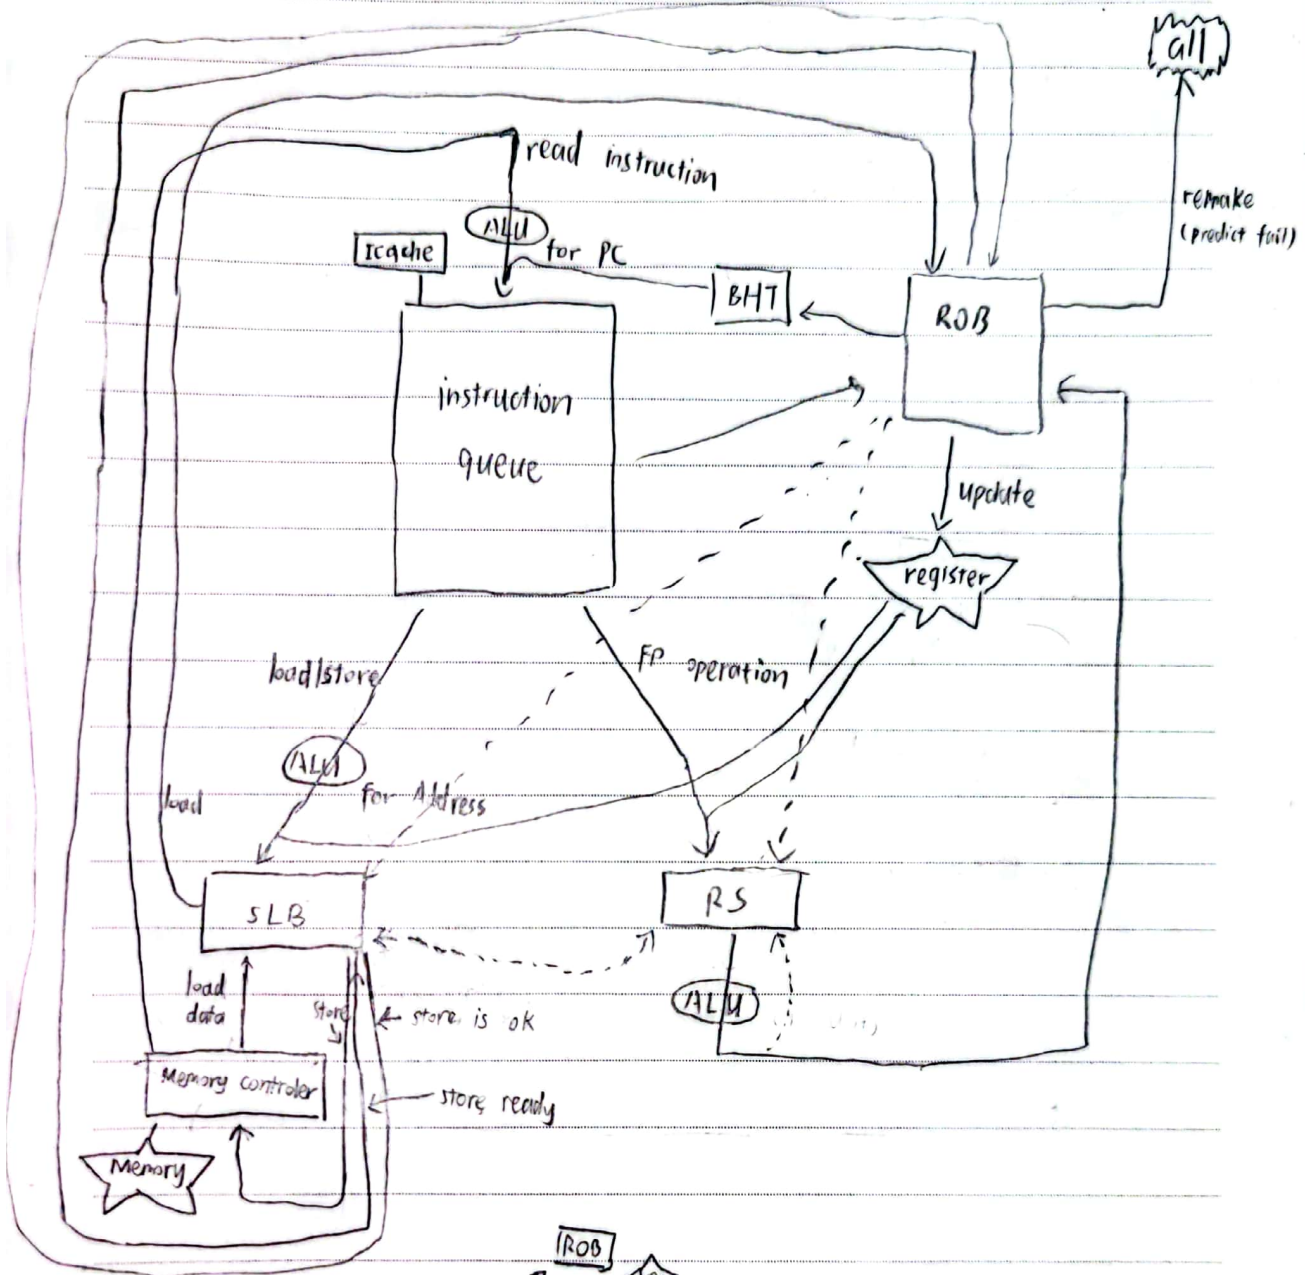 all
read instruction
remake
(predict fail)
ALU
Icache
for PC
BHT
ROB
instruction
queue
update
register
load/store
FP operation
ALU
for Address
load
SLB
RS
load
data
store
store is ok
ALU
Memory controler
store ready
Memory
ROB